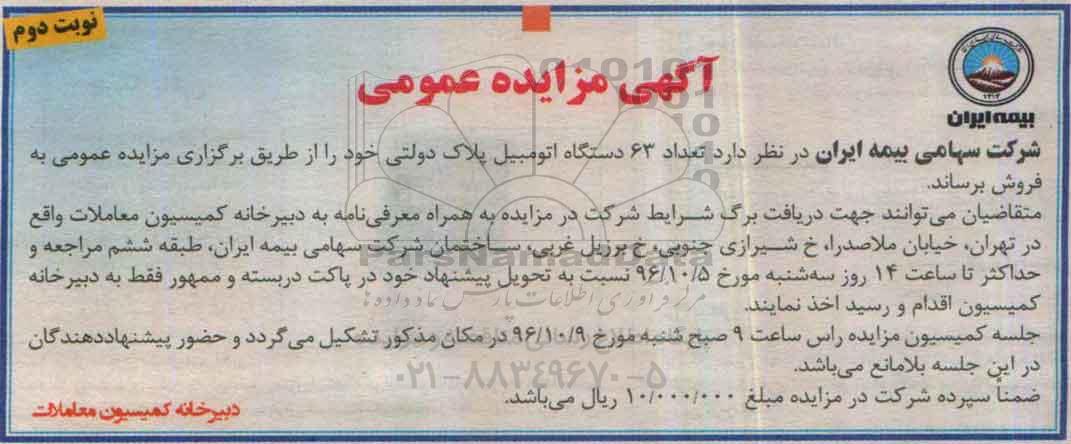 نوبت دوم
۱۳۱۴
بیمه ایران
آگهی مزایده عمومی
شرکت سهامی بیمه ایران در نظر دارد تعداد ۶۳ دستگاه اتومبیل پلاک دولتی خود را از طریق برگزاری مزایده عمومی به
فروش برساند.
متقاضیان می‌توانند جهت دریافت برگ شرایط شرکت در مزایده به همراه معرفی‌نامه به دبیرخانه کمیسیون معاملات واقع
در تهران، خیابان ملاصدرا، خ شیرازی جنوبی، خ برزیل غربی، ساختمان شرکت سهامی بیمه ایران، طبقه ششم مراجعه و
حداکثر تا ساعت ۱۴ روز سه‌شنبه مورخ ۹۶/۱۰/۵ نسبت به تحویل پیشنهاد خود در پاکت دربسته و ممهور فقط به دبیرخانه
کمیسیون اقدام و رسید اخذ نمایند.
جلسه کمیسیون مزایده راس ساعت ۹ صبح شنبه مورخ ۹۶/۱۰/۹ در مکان مذکور تشکیل می‌گردد و حضور پیشنهاددهندگان
در این جلسه بلامانع می‌باشد.
ضمناً سپرده شرکت در مزایده مبلغ ۱۰/۰۰۰/۰۰۰ ریال می‌باشد.
دبیرخانه کمیسیون معاملات
ParsNamadData
مرکز فرآوری اطلاعات پارس نماد داده‌ها
۰۲۱-۸۸۳۴۹۶۷۰-۵